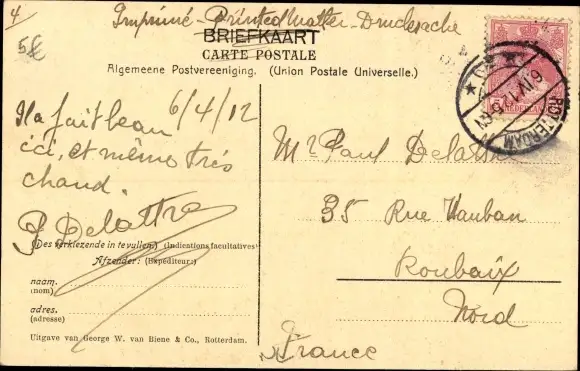 4
Imprimé - Printed Matter - Drucksache
5€
BRIEFKAART
CARTE POSTALE
Algemeene Postvereeniging. (Union Postale Universelle.)
6/4/12
Il a fait beau
ici, et même très
chaud.
P Delattre
(Des verkiezende in te vullen.) (Indications facultatives)
Afzender: (Expéditeur:)
naam.
(nom)
adres.
(adresse)
Uitgave van George W. van Biene & Co., Rotterdam.
ROTTERDAM
NEDERLAND
Mr Paul Delattre
35 Rue Vauban
Roubaix
Nord
France